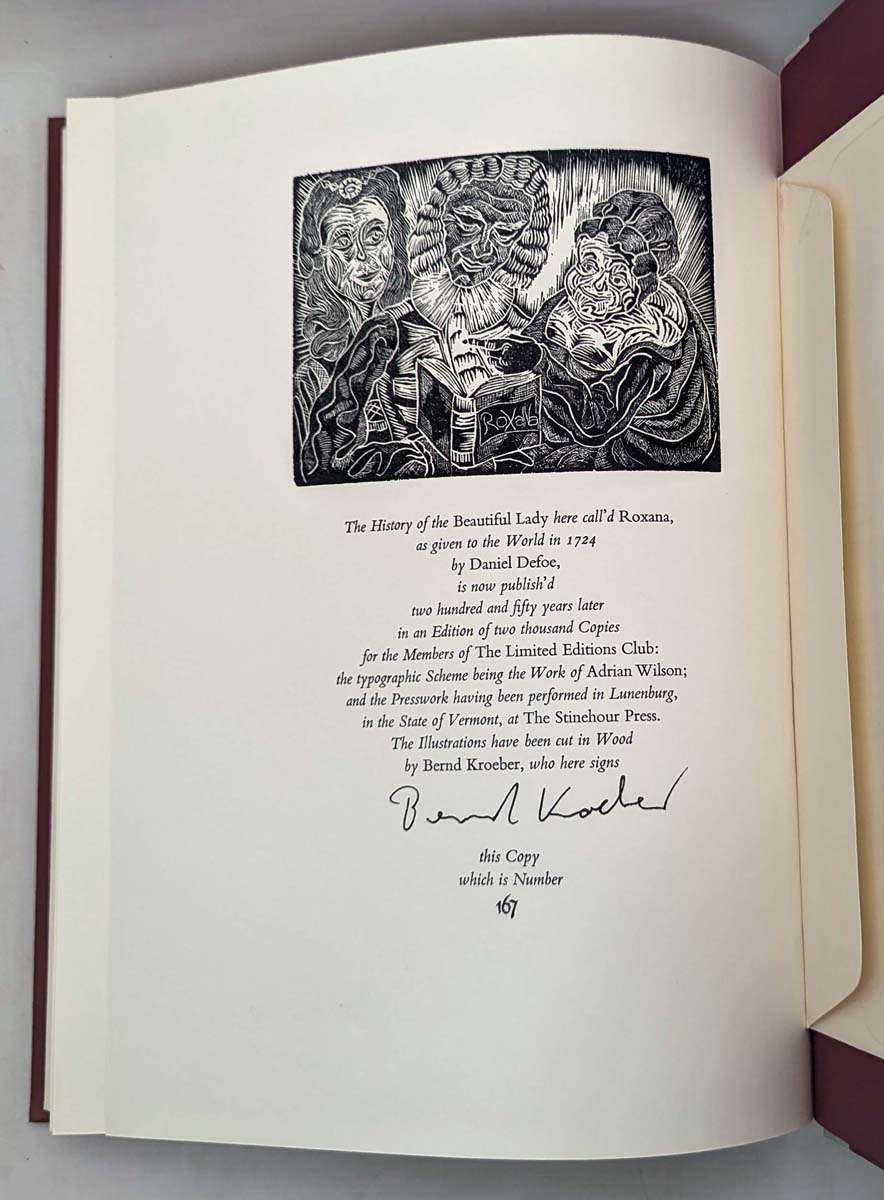 Roxana
The History of the Beautiful Lady here call'd Roxana,
as given to the World in 1724
by Daniel Defoe,
is now publish'd
two hundred and fifty years later
in an Edition of two thousand Copies
for the Members of The Limited Editions Club:
the typographic Scheme being the Work of Adrian Wilson;
and the Presswork having been performed in Lunenburg,
in the State of Vermont, at The Stinehour Press.
The Illustrations have been cut in Wood
by Bernd Kroeber, who here signs
Bernd Kroeber
this Copy
which is Number
167